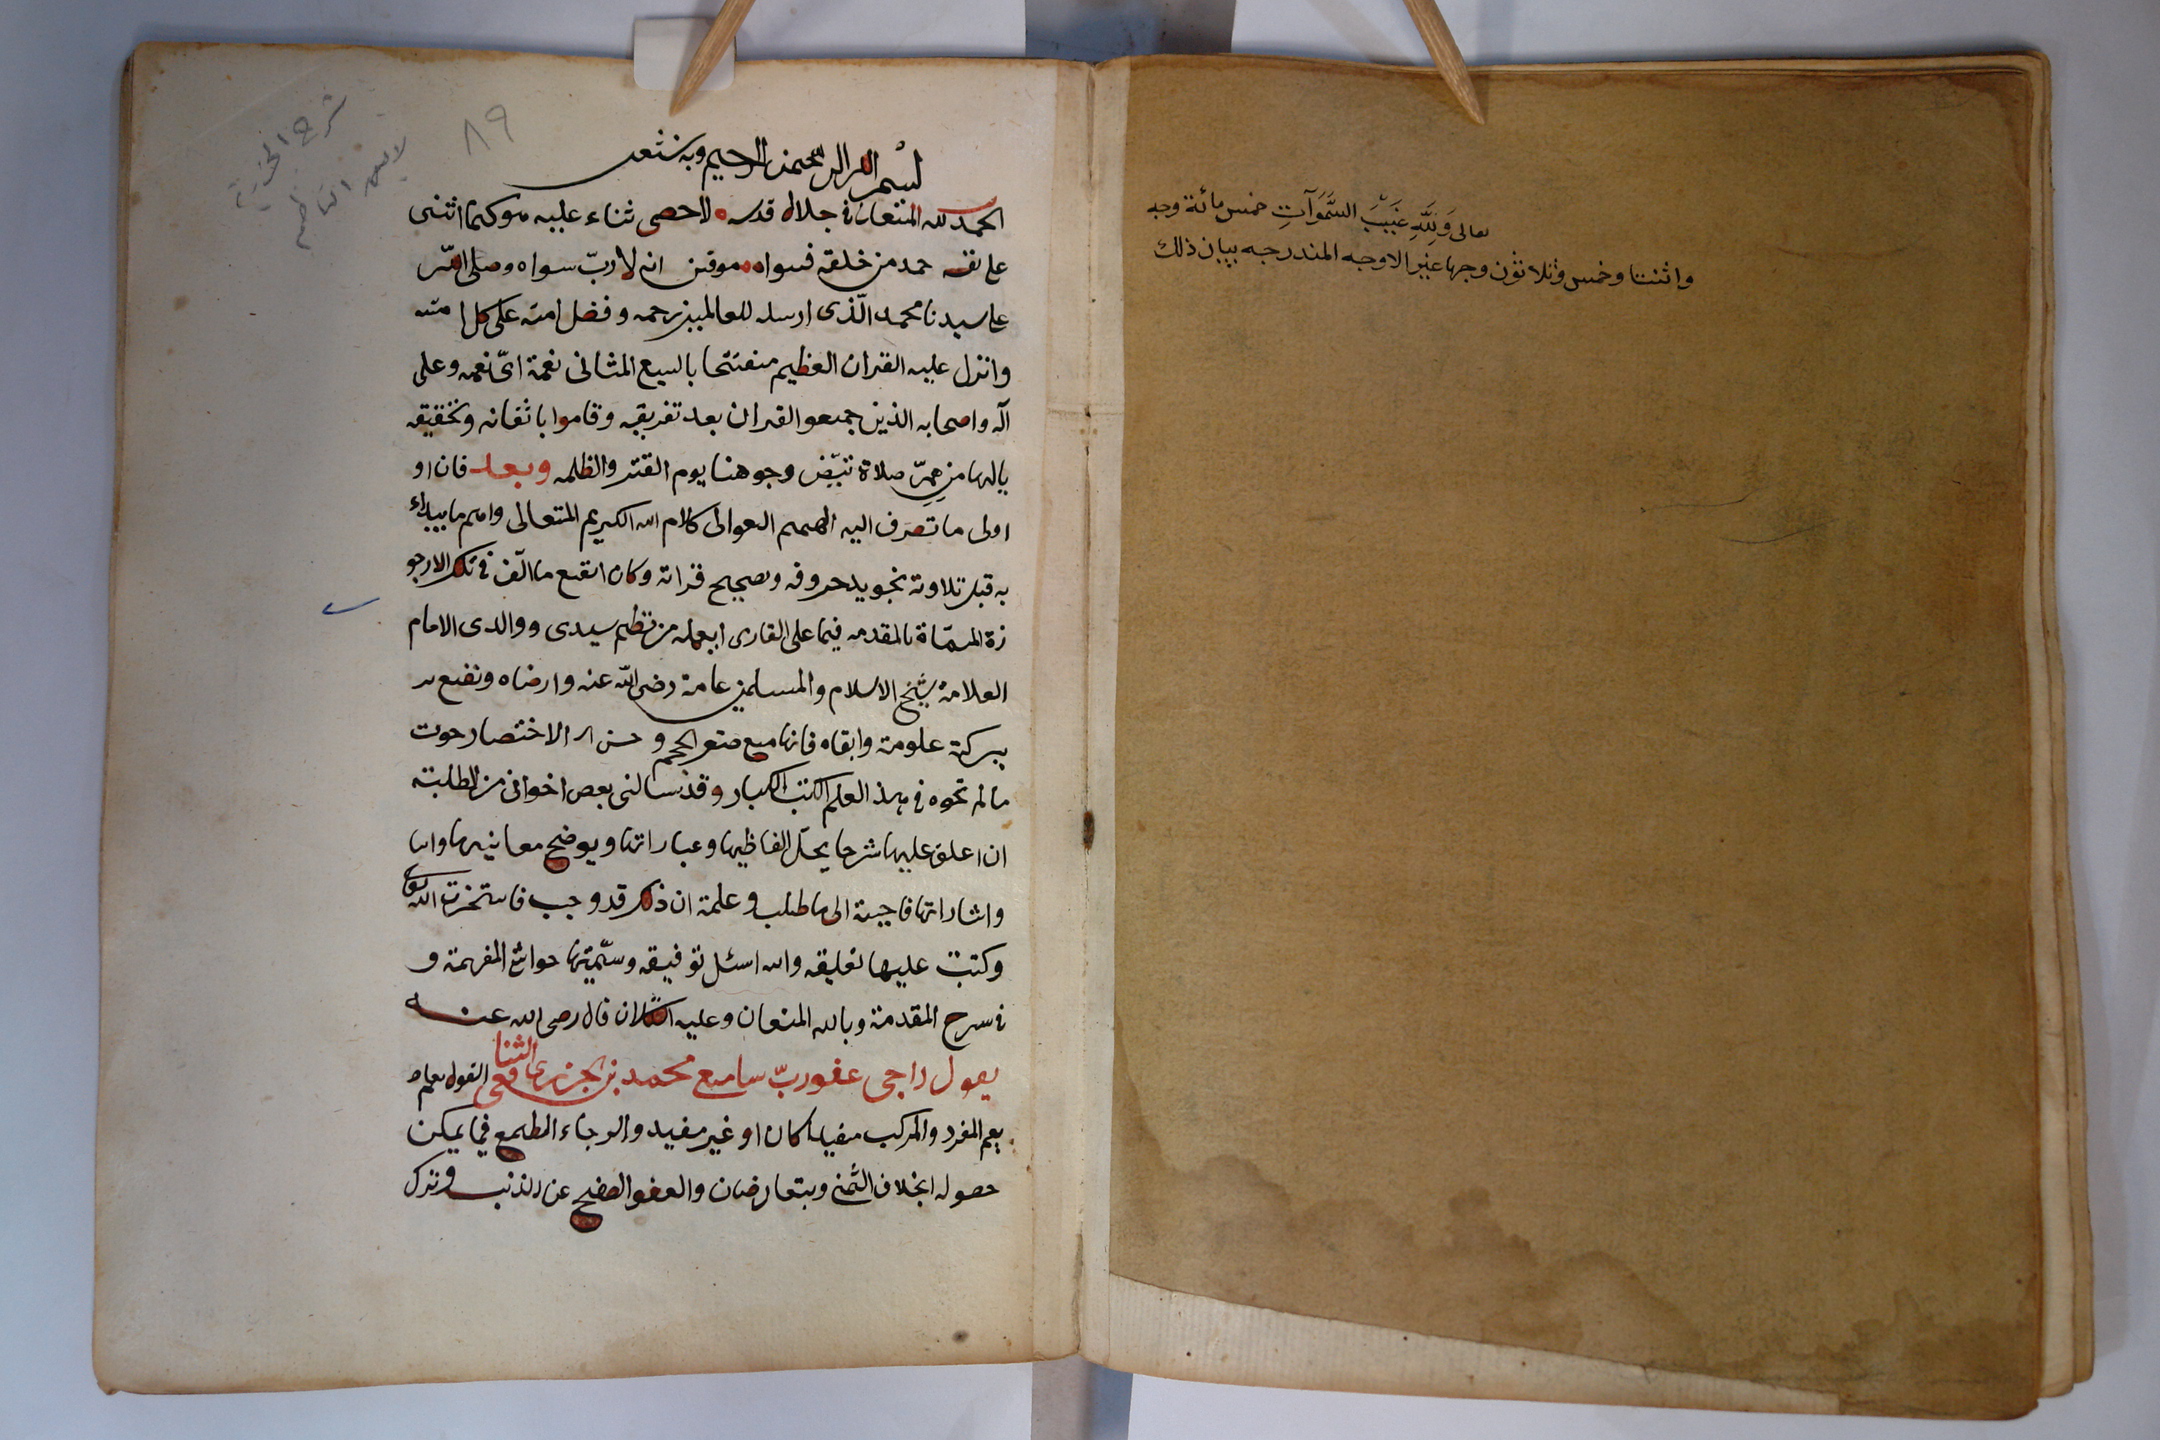 تعالى وَلِلَّهِ غَيْبَ السَّمَوَآتِ خمس مائة وجه
واثنتا وخمس وثلاثون وجها غير الاوجه المندرجه بيان ذلك
٨٩
شرح الجزرية
لابن الناظم
بسم الله الرحمن الرحيم وبه نستعين
الحمد لله المتعال في جلال قدسه لا احصى ثناء عليه هو كما اثنى
على نفسه حمد من خلقه فسواه موقن انه لا ربّ سواه وصلى الله
على سيدنا محمد الّذى ارسله للعالمين رحمه وفضل امته على كل امته
وانزل عليه القران العظيم مفتتحا بالسبع المثانى نعمة اىّ نعمه وعلى
آله واصحابه الذين جمعوا القران بعد تفريقه وقاموا باتقانه وتحقيقه
يالها من صلاة تبيّض وجوهنا يوم القتر والظلمه وبعد فان او
اولى ما تصرف اليه الهمم العوالى كلام الله الكريم المتعالى واهم ما يبداء
به قبل تلاوته تجويد حروفه وتصحيح قراته وكان انفع ما الّف في تلك الارجو
زة المسمّاة بالمقدمه فيما على القارى ان يعمله من نظم سيدى ووالدى الامام
العلامة شيخ الاسلام والمسلمين عامة رضى الله عنه وارضاه ونفع
ببركة علومه وابقاه فانها مع صغر الحجم وحسن الاختصار حوت
ما لم تحوه في هذا العلم الكتب الكبار وقد سالنى بعض اخوانى من الطلبته
ان اعلق عليها شرحا يحلّ الفاظيها وعباراتها ويوضح معانيها واسا
واشاراتها فاجبته الى ما طلب وعلمة ان ذلك قد وجب فاستخرت الله تعالى
وكتبت عليها تعليقه والله اسئل توفيقه وسمّيتها حواشى المفهمة و
في سرح المقدمة وبالله المتعان وعليه التكلان قال رضى الله عنه
يقول راجى عفو ربّ سامع محمد بن الجزرى الشافعى القول يعم
يعم المفرد والمركب مفيدا كان او غير مفيد والرجاء الطمع فيما يمكن
حصوله بخلاف التمنى ويتعارضان والعفو الصفح عن الذنب وترك